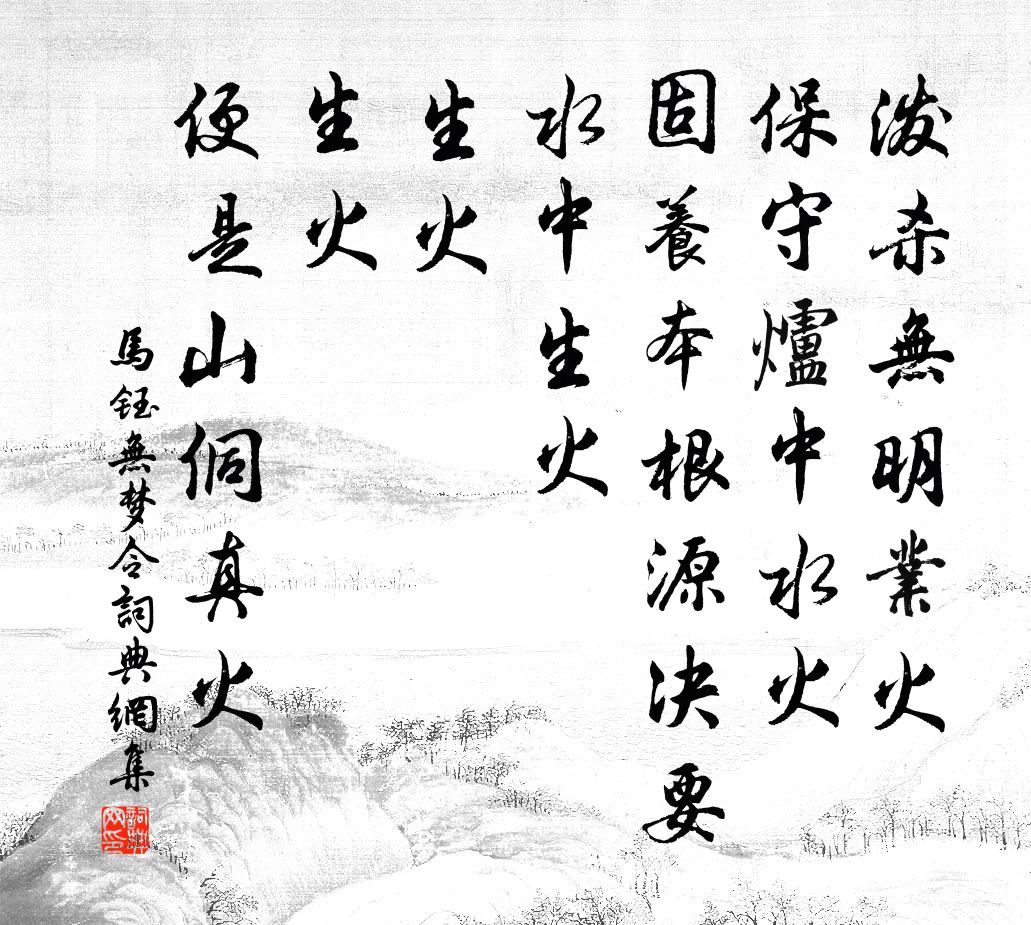 泼杀無明業火
保守爐中水火
固養本根源
决要
水中生火
生火
生火
便是山侗真火
馬鈺無梦令詞典網集
詞典網印